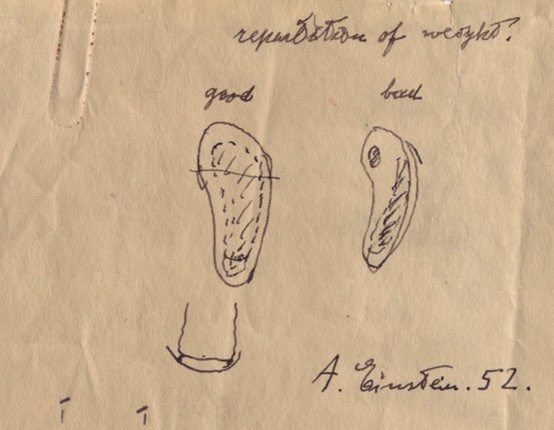 of weight.
good bad
A. Einstein. 52.